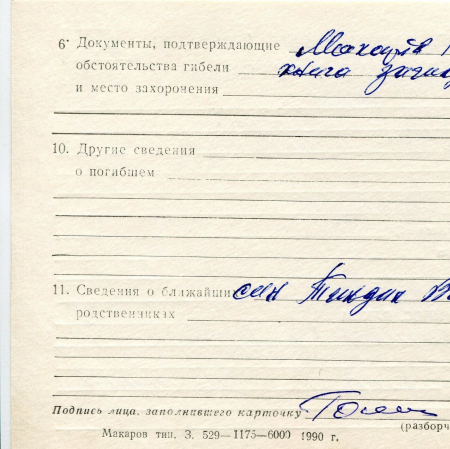 6· Документы, подтверждающие
обстоятельства гибели книга
и место захоронения
10. Другие сведения
о погибшем
11. Сведения о ближайших сын Тиндик
родственниках
Подпись лица, заполнившего карточку
(разборч
Макаров тип. З. 529—1175—6000 1990 г.